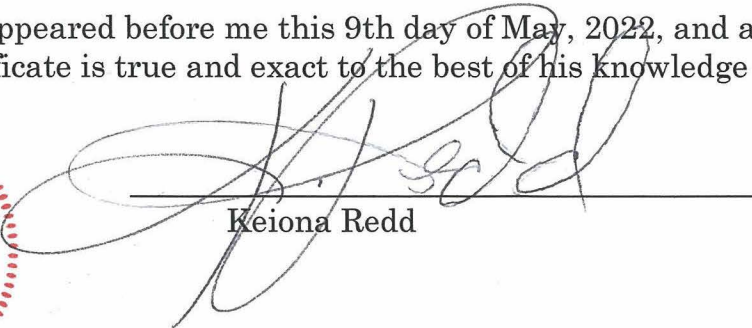 ppeared before me this 9th day of May, 2022, and a
ficate is true and exact to the best of his knowledge
Keiona Redd